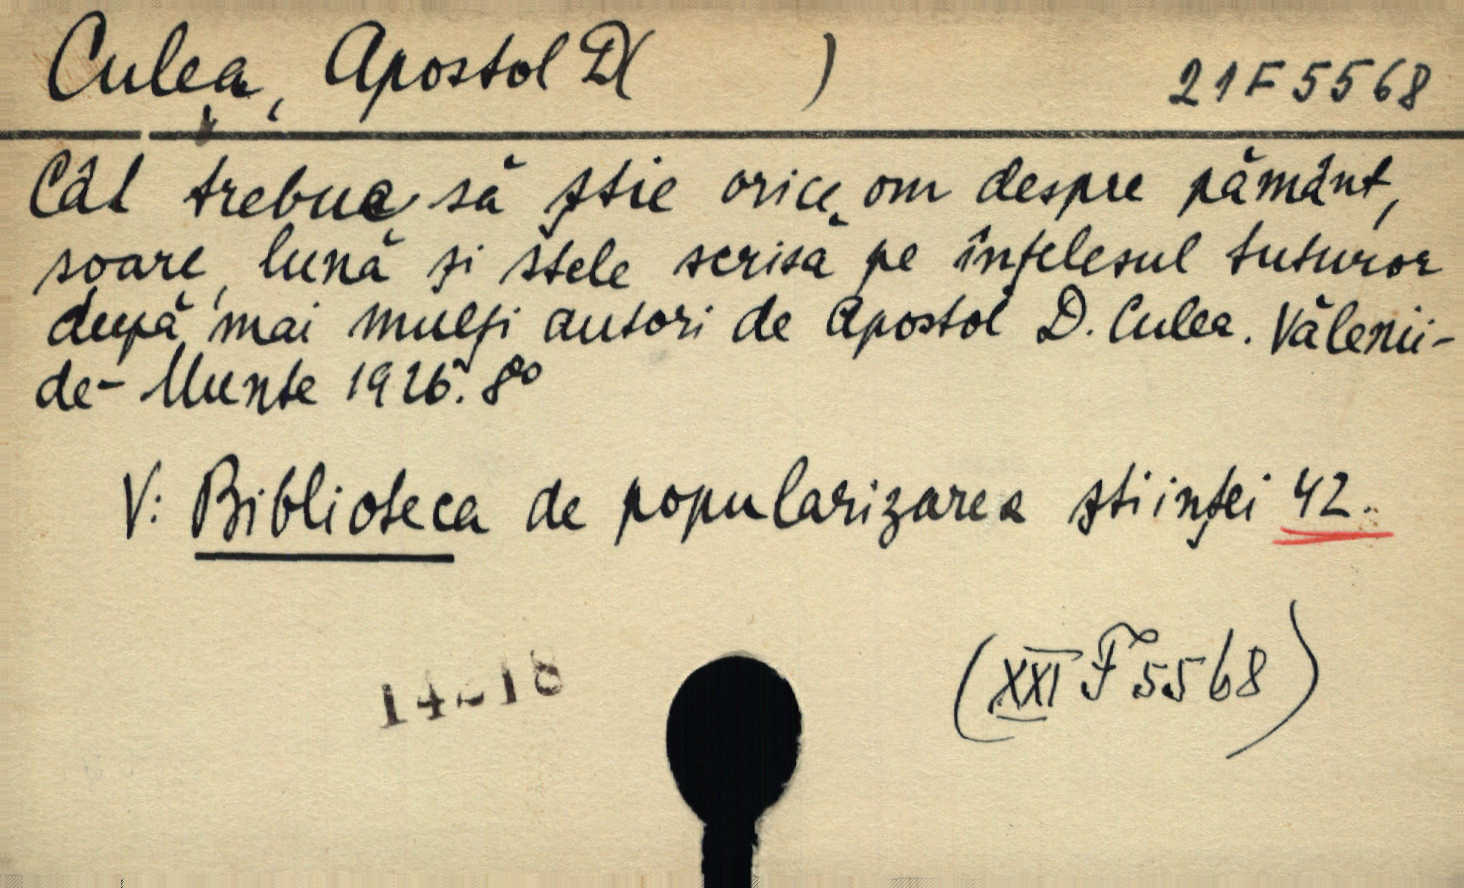 Culea, Apostol D( )
21F5568
Cât trebue să ştie orice om despre pământ,
soare, lună şi stele scrisă pe înţelesul tuturor
după mai mulţi autori de Apostol D. Culea. Vălenii-
de-Munte 1926. 8°
V: Biblioteca de popularizarea ştiinţei 42.
14-18
(XXI F 5568)